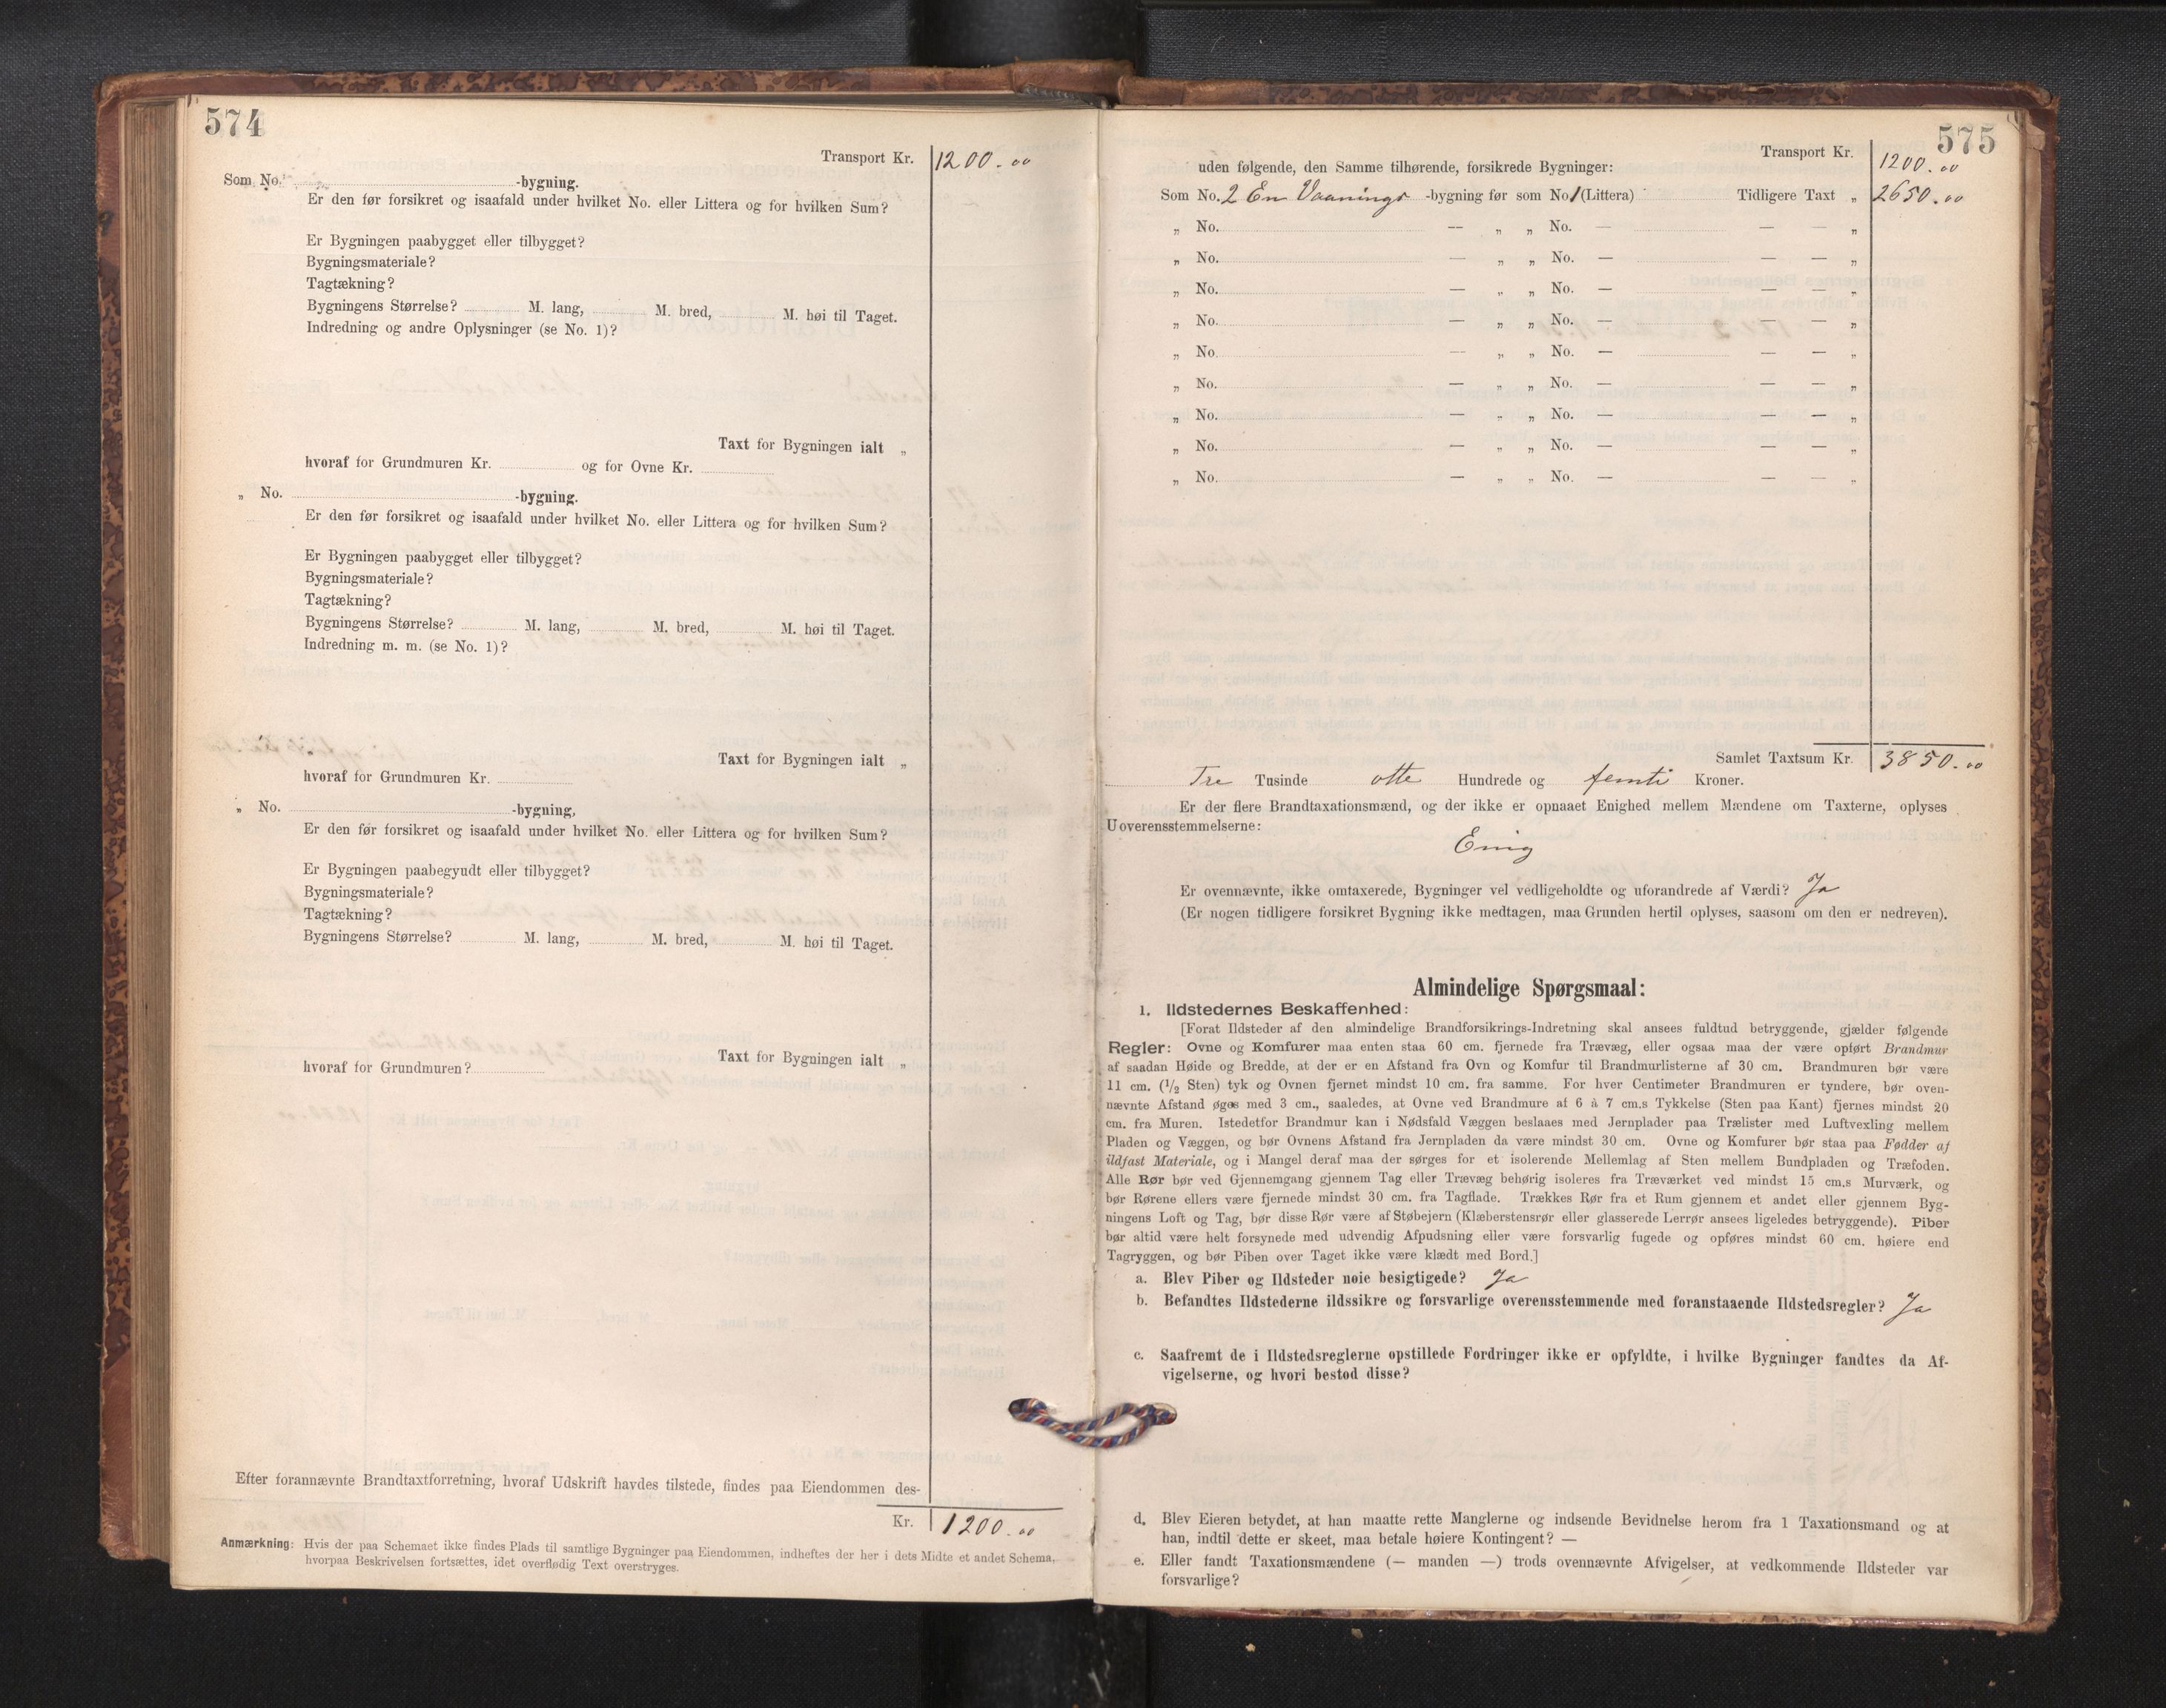 574
Transport Kr. 1200.00
Som No. -bygning.
Er den før forsikret og isaafald under hvilket No. eller Littera og for hvilken Sum?
Er Bygningen paabygget eller tilbygget?
Bygningsmateriale?
Tagtækning?
Bygningens Størrelse? M. lang, M. bred, M. høi til Taget.
Indredning og andre Oplysninger (se No. 1)?
Taxt for Bygningen ialt „
hvoraf for Grundmuren Kr. og for Ovne Kr.
„ No. -bygning.
Er den før forsikret og isaafald under hvilket No. eller Littera og for hvilken Sum?
Er Bygningen paabygget eller tilbygget?
Bygningsmateriale?
Tagtækning?
Bygningens Størrelse? M. lang, M. bred, M. høi til Taget.
Indredning m. m. (se No. 1)?
Taxt for Bygningen ialt „
hvoraf for Grundmuren Kr.
„ No. -bygning,
Er den før forsikret og isaafald under hvilket No. eller Littera og for hvilken Sum?
Er Bygningen paabegyndt eller tilbygget?
Bygningsmateriale?
Tagtækning?
Bygningens Størrelse? M. lang, M. bred, M. høi til Taget.
Taxt for Bygningen ialt „
hvoraf for Grundmuren?
Efter forannævnte Brandtaxtforretning, hvoraf Udskrift havdes tilstede, findes paa Eiendommen des-
Kr. 1200.00
Anmærkning: Hvis der paa Schemaet ikke findes Plads til samtlige Bygninger paa Eiendommen, indheftes der her i dets Midte et andet Schema,
hvorpaa Beskrivelsen fortsættes, idet overflødig Text overstryges.
575
Transport Kr. 1200.00
uden følgende, den Samme tilhørende, forsikrede Bygninger:
Som No. 2 En Vaanings -bygning før som No 1 (Littera) Tidligere Taxt „ 2650.00
„ No. — „ „ No. — — — „
„ No. — „ „ No. — — — „
„ No. — „ „ No. — — — „
„ No. — „ „ No. — — — „
„ No. — „ „ No. — — — „
„ No. — „ „ No. — — — „
„ No. — „ „ No. — — — „
„ No. — „ „ No. — — — „
„ No. — „ „ No. — — — „
Samlet Taxtsum Kr. 3850.00
Tre Tusinde otte Hundrede og femti Kroner.
Er der flere Brandtaxationsmænd, og der ikke er opnaaet Enighed mellem Mændene om Taxterne, oplyses
Uoverensstemmelserne:
Enig
Er ovennævnte, ikke omtaxerede, Bygninger vel vedligeholdte og uforandrede af Værdi? Ja
(Er nogen tidligere forsikret Bygning ikke medtagen, maa Grunden hertil oplyses, saasom om den er nedreven).
Almindelige Spørgsmaal:
1. Ildstedernes Beskaffenhed:
[Forat Ildsteder af den almindelige Brandforsikrings-Indretning skal ansees fuldtud betryggende, gjælder følgende
Regler: Ovne og Komfurer maa enten staa 60 cm. fjernede fra Trævæg, eller ogsaa maa der være opført Brandmur
af saadan Høide og Bredde, at der er en Afstand fra Ovn og Komfur til Brandmurlisterne af 30 cm. Brandmuren bør være
11 cm. (1/2 Sten) tyk og Ovnen fjernet mindst 10 cm. fra samme. For hver Centimeter Brandmuren er tyndere, bør oven-
nævnte Afstand øges med 3 cm., saaledes, at Ovne ved Brandmure af 6 à 7 cm.s Tykkelse (Sten paa Kant) fjernes mindst 20
cm. fra Muren. Istedetfor Brandmur kan i Nødsfald Væggen beslaaes med Jernplader paa Trælister med Luftvexling mellem
Pladen og Væggen, og bør Ovnens Afstand fra Jernpladen da være mindst 30 cm. Ovne og Komfurer bør staa paa Fødder af
ildfast Materiale, og i Mangel deraf maa der sørges for et isolerende Mellemlag af Sten mellem Bundpladen og Træfoden.
Alle Rør bør ved Gjennemgang gjennem Tag eller Trævæg behørig isoleres fra Træværket ved mindst 15 cm.s Murværk, og
bør Rørene ellers være fjernede mindst 30 cm. fra Tagflade. Trækkes Rør fra et Rum gjennem et andet eller gjennem Byg-
ningens Loft og Tag, bør disse Rør være af Støbejern (Klæberstensrør eller glasserede Lerrør ansees ligeledes betryggende). Piber
bør altid være helt forsynede med udvendig Afpudsning eller være forsvarlig fugede og opføres mindst 60 cm. høiere end
Tagryggen, og bør Piben over Taget ikke være klædt med Bord.]
a. Blev Piber og Ildsteder nøie besigtigede? Ja
b. Befandtes Ildstederne ildssikre og forsvarlige overensstemmende med foranstaaende Ildstedsregler? Ja
c. Saafremt de i Ildstedsreglerne opstillede Fordringer ikke er opfyldte, i hvilke Bygninger fandtes da Af-
vigelserne, og hvori bestod disse?
d. Blev Eieren betydet, at han maatte rette Manglerne og indsende Bevidnelse herom fra 1 Taxationsmand og at
han, indtil dette er skeet, maa betale høiere Kontingent? —
e. Eller fandt Taxationsmændene (— manden —) trods ovennævnte Afvigelser, at vedkommende Ildsteder var
forsvarlige?